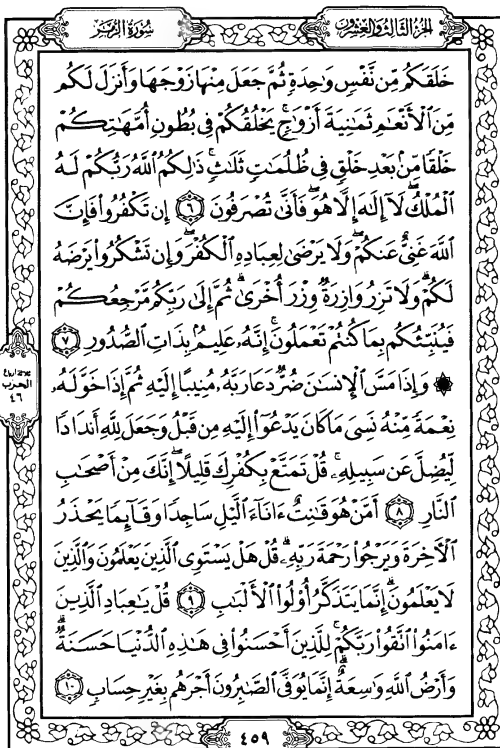 الجزء الثالث والعشرون
سورة الزمر
خَلَقَكُم مِّن نَّفْسٍ وَٰحِدَةٍ ثُمَّ جَعَلَ مِنْهَا زَوْجَهَا وَأَنزَلَ لَكُم
مِّنَ ٱلْأَنْعَٰمِ ثَمَٰنِيَةَ أَزْوَٰجٍۚ يَخْلُقُكُمْ فِى بُطُونِ أُمَّهَٰتِكُمْ
خَلْقًا مِّنۢ بَعْدِ خَلْقٍ فِى ظُلُمَٰتٍ ثَلَٰثٍۚ ذَٰلِكُمُ ٱللَّهُ رَبُّكُمْ لَهُ
ٱلْمُلْكُۖ لَآ إِلَٰهَ إِلَّا هُوَۖ فَأَنَّىٰ تُصْرَفُونَ ٦ إِن تَكْفُرُوا۟ فَإِنَّ
ٱللَّهَ غَنِىٌّ عَنكُمْۖ وَلَا يَرْضَىٰ لِعِبَادِهِ ٱلْكُفْرَۖ وَإِن تَشْكُرُوا۟ يَرْضَهُ
لَكُمْۗ وَلَا تَزِرُ وَازِرَةٌ وِزْرَ أُخْرَىٰۗ ثُمَّ إِلَىٰ رَبِّكُم مَّرْجِعُكُمْ
فَيُنَبِّئُكُم بِمَا كُنتُمْ تَعْمَلُونَۚ إِنَّهُۥ عَلِيمٌۢ بِذَاتِ ٱلصُّدُورِ ٧
۞ وَإِذَا مَسَّ ٱلْإِنسَٰنَ ضُرٌّ دَعَا رَبَّهُۥ مُنِيبًا إِلَيْهِ ثُمَّ إِذَا خَوَّلَهُۥ
نِعْمَةً مِّنْهُ نَسِىَ مَا كَانَ يَدْعُوٓا۟ إِلَيْهِ مِن قَبْلُ وَجَعَلَ لِلَّهِ أَندَادًا
لِّيُضِلَّ عَن سَبِيلِهِۦۚ قُلْ تَمَتَّعْ بِكُفْرِكَ قَلِيلًاۖ إِنَّكَ مِنْ أَصْحَٰبِ
ٱلنَّارِ ٨ أَمَّنْ هُوَ قَٰنِتٌ ءَانَآءَ ٱلَّيْلِ سَاجِدًا وَقَآئِمًا يَحْذَرُ
ٱلْءَاخِرَةَ وَيَرْجُوا۟ رَحْمَةَ رَبِّهِۦۗ قُلْ هَلْ يَسْتَوِى ٱلَّذِينَ يَعْلَمُونَ وَٱلَّذِينَ
لَا يَعْلَمُونَۗ إِنَّمَا يَتَذَكَّرُ أُو۟لُوا۟ ٱلْأَلْبَٰبِ ٩ قُلْ يَٰعِبَادِ ٱلَّذِينَ
ءَامَنُوا۟ ٱتَّقُوا۟ رَبَّكُمْۚ لِلَّذِينَ أَحْسَنُوا۟ فِى هَٰذِهِ ٱلدُّنْيَا حَسَنَةٌۗ
وَأَرْضُ ٱللَّهِ وَٰسِعَةٌۗ إِنَّمَا يُوَفَّى ٱلصَّٰبِرُونَ أَجْرَهُم بِغَيْرِ حِسَابٍ ١٠
ثلاثة أرباع
الحزب
٤٦
٤٥٩